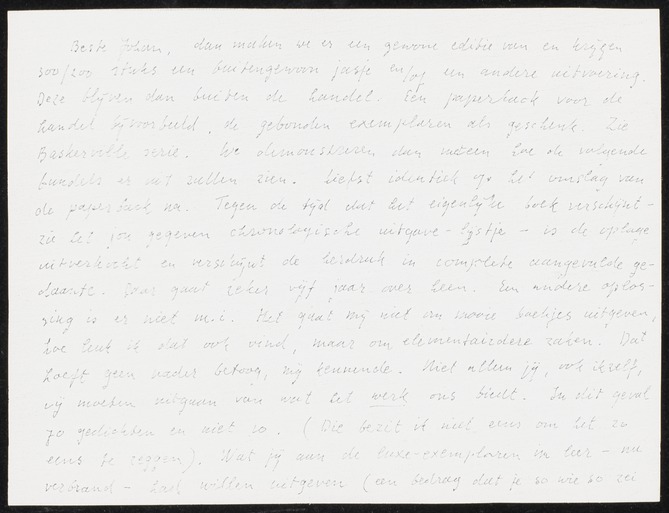 Beste Johan, dan maken we er een gewone editie van en krijgen
300/200 stuks een buitengewoon jasje en/of een andere uitvoering.
Deze blijven dan buiten de handel. Een paperback voor de
handel bijvoorbeeld, de gebonden exemplaren als geschenk. Zie
Baskerville serie. We demonstreren dan meteen hoe de volgende
bundels er uit zullen zien. Liefst identiek op het omslag van
de paperback na. Tegen de tijd dat het eigenlijke boek verschijnt -
zie het jou gegeven chronologische uitgave-lijstje - is de oplage
uitverkocht en verschijnt de herdruk in complete aangevulde ge-
daante. Daar gaat zeker vijf jaar over heen. Een andere oplos-
sing is er niet m.i. Het gaat mij niet om mooie boekjes uitgeven,
hoe leuk ik dat ook vind, maar om elementairdere zaken. Dat
hoeft geen nader betoog, mij kennende. Niet alleen jij, ook ikzelf,
wij moeten uitgaan van wat het werk ons biedt. In dit geval
70 gedichten en niet 50. (Die bezit ik niet eens om het zo
eens te zeggen). Wat jij aan de luxe-exemplaren in leer - nu
verbrand - had willen uitgeven (een bedrag dat je so wie so zei